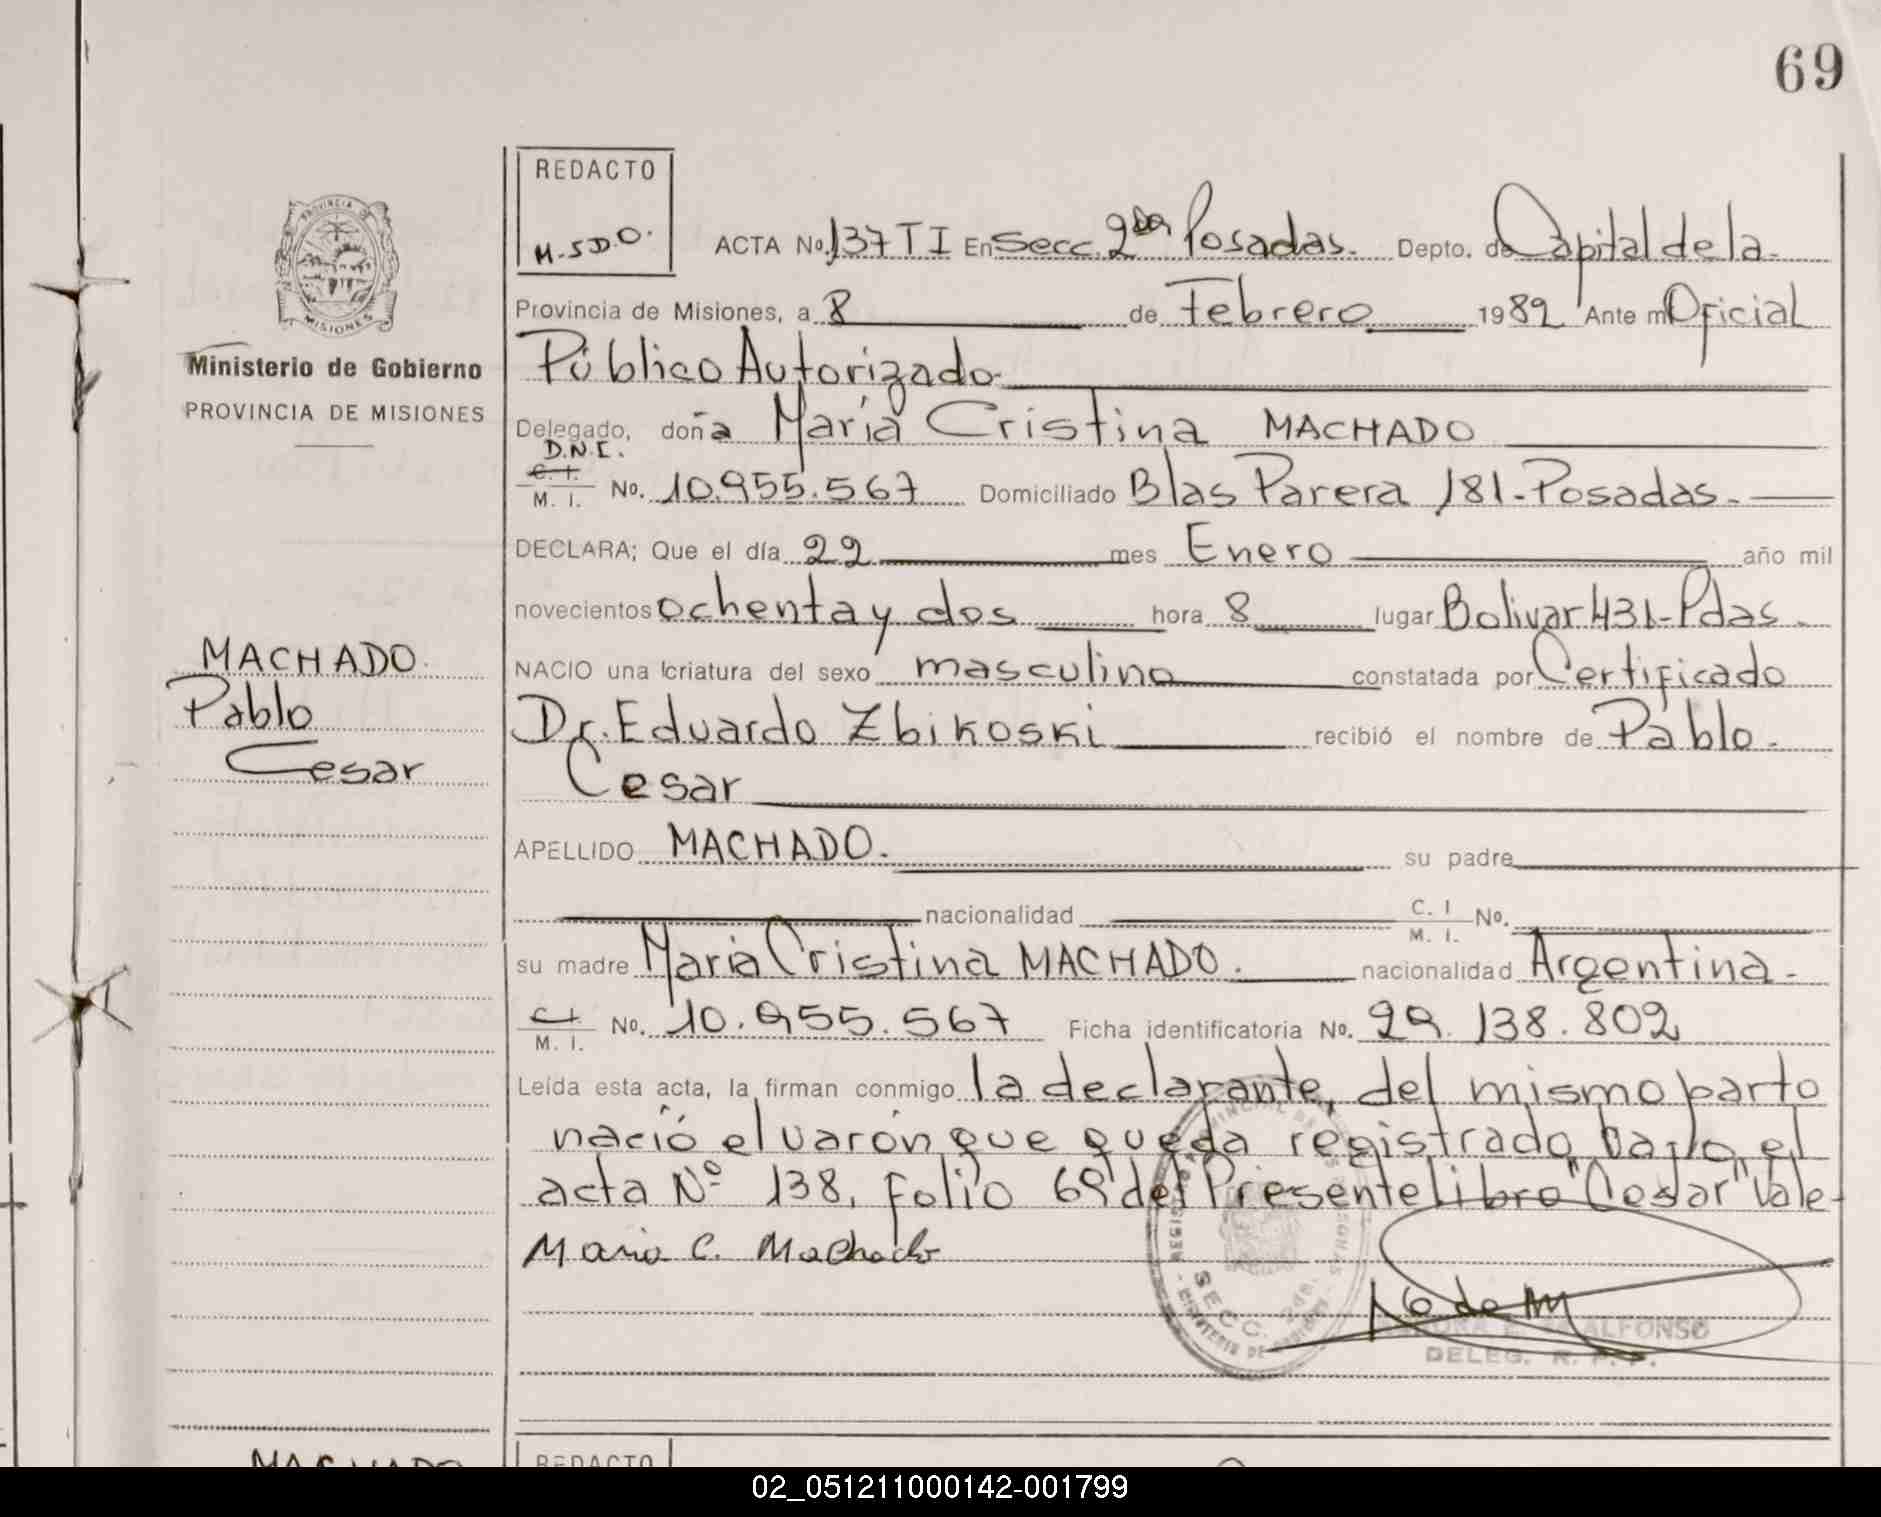 69
REDACTO
M.S.D.O.
PROVINCIA DE
MISIONES
Ministerio de Gobierno
PROVINCIA DE MISIONES
MACHADO.
Pablo
Cesar
ACTA No. 137 T I En Secc. 2da Posadas. Depto. de Capital de la
Provincia de Misiones, a 8 de Febrero 1982 Ante mi Oficial
Público Autorizado
Delegado, doña María Cristina MACHADO
D.N.I.
C. I.
M. I. No. 10.955.567 Domiciliado Blas Parera 181-Posadas.
DECLARA; Que el día 22 mes Enero año mil
novecientos ochenta y dos hora 8 lugar Bolivar 431-Pdas.
NACIO una criatura del sexo masculino constatada por Certificado
Dr. Eduardo Zbikoski recibió el nombre de Pablo.
Cesar
APELLIDO MACHADO. su padre
nacionalidad C. I M. I. No.
su madre María Cristina MACHADO. nacionalidad Argentina.
C. I. M. I. No. 10.955.567 Ficha identificatoria No. 29.138.802
Leída esta acta, la firman conmigo la declarante, del mismo parto
nació el varón que queda registrado bajo el
acta Nº 138, folio 69 del Presente libro "Cesar" Vale
Maria C. Machado
SECC. 2da.
ALFONSO
DELEG. R. P. P.
MACHADO
REDACTO
02_051211000142-001799